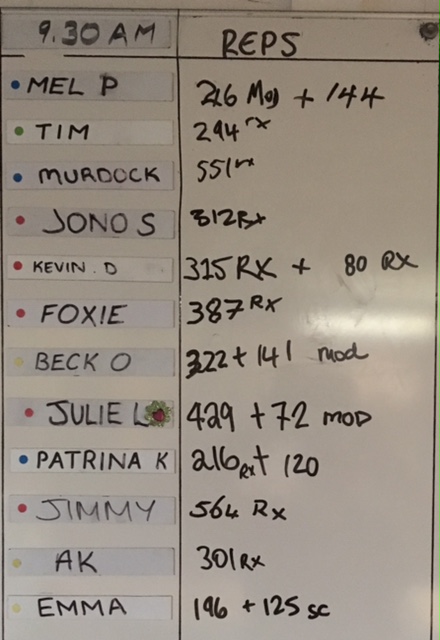 9.30 AM REPS
MEL P 216 Mod + 144
TIM 294 rx
MURDOCK 551 rx
JONO S 312 Rx
KEVIN. D 315 RX + 80 RX
FOXIE 387 RX
BECK O 322 + 141 mod
JULIE L 429 + 72 MOD
PATRINA K 216 Rx + 120
JIMMY 564 Rx
AK 301 RX
EMMA 196 + 125 sc